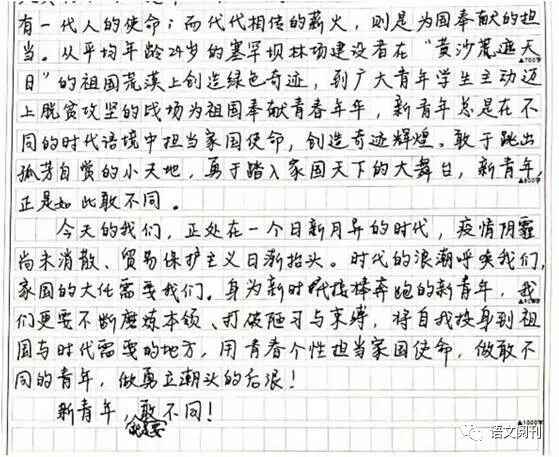 有一代人的使命；而代代相传的薪火，则是为国奉献的担
当。从平均年龄24岁的塞罕坝林场建设者在“黄沙荒遮天
日”的祖国荒漠上创造绿色奇迹，到广大青年学生主动迈
上脱贫攻坚的战场为祖国奉献青春年华，新青年总是在不
▲700字
同的时代语境中担当家国使命，创造奇迹辉煌。敢于跳出
孤芳自赏的小天地，勇于踏入家国天下的大舞台，新青年，
▲800字
正是如此敢不同。
今天的我们，正处在一个日新月异的时代，疫情阴霾
尚未消散、贸易保护主义日渐抬头。时代的浪潮呼唤我们，
家国的大任需要我们。身为新时代接棒奔跑的新青年，我
们更要不断磨炼本领、打破陋习与束缚，将自我投身到祖
国与时代需要的地方，用青春个性担当家国使命，做敢不
同的青年，做勇立潮头的后浪！
新青年，就要敢不同！
▲1000字
语文阅刊